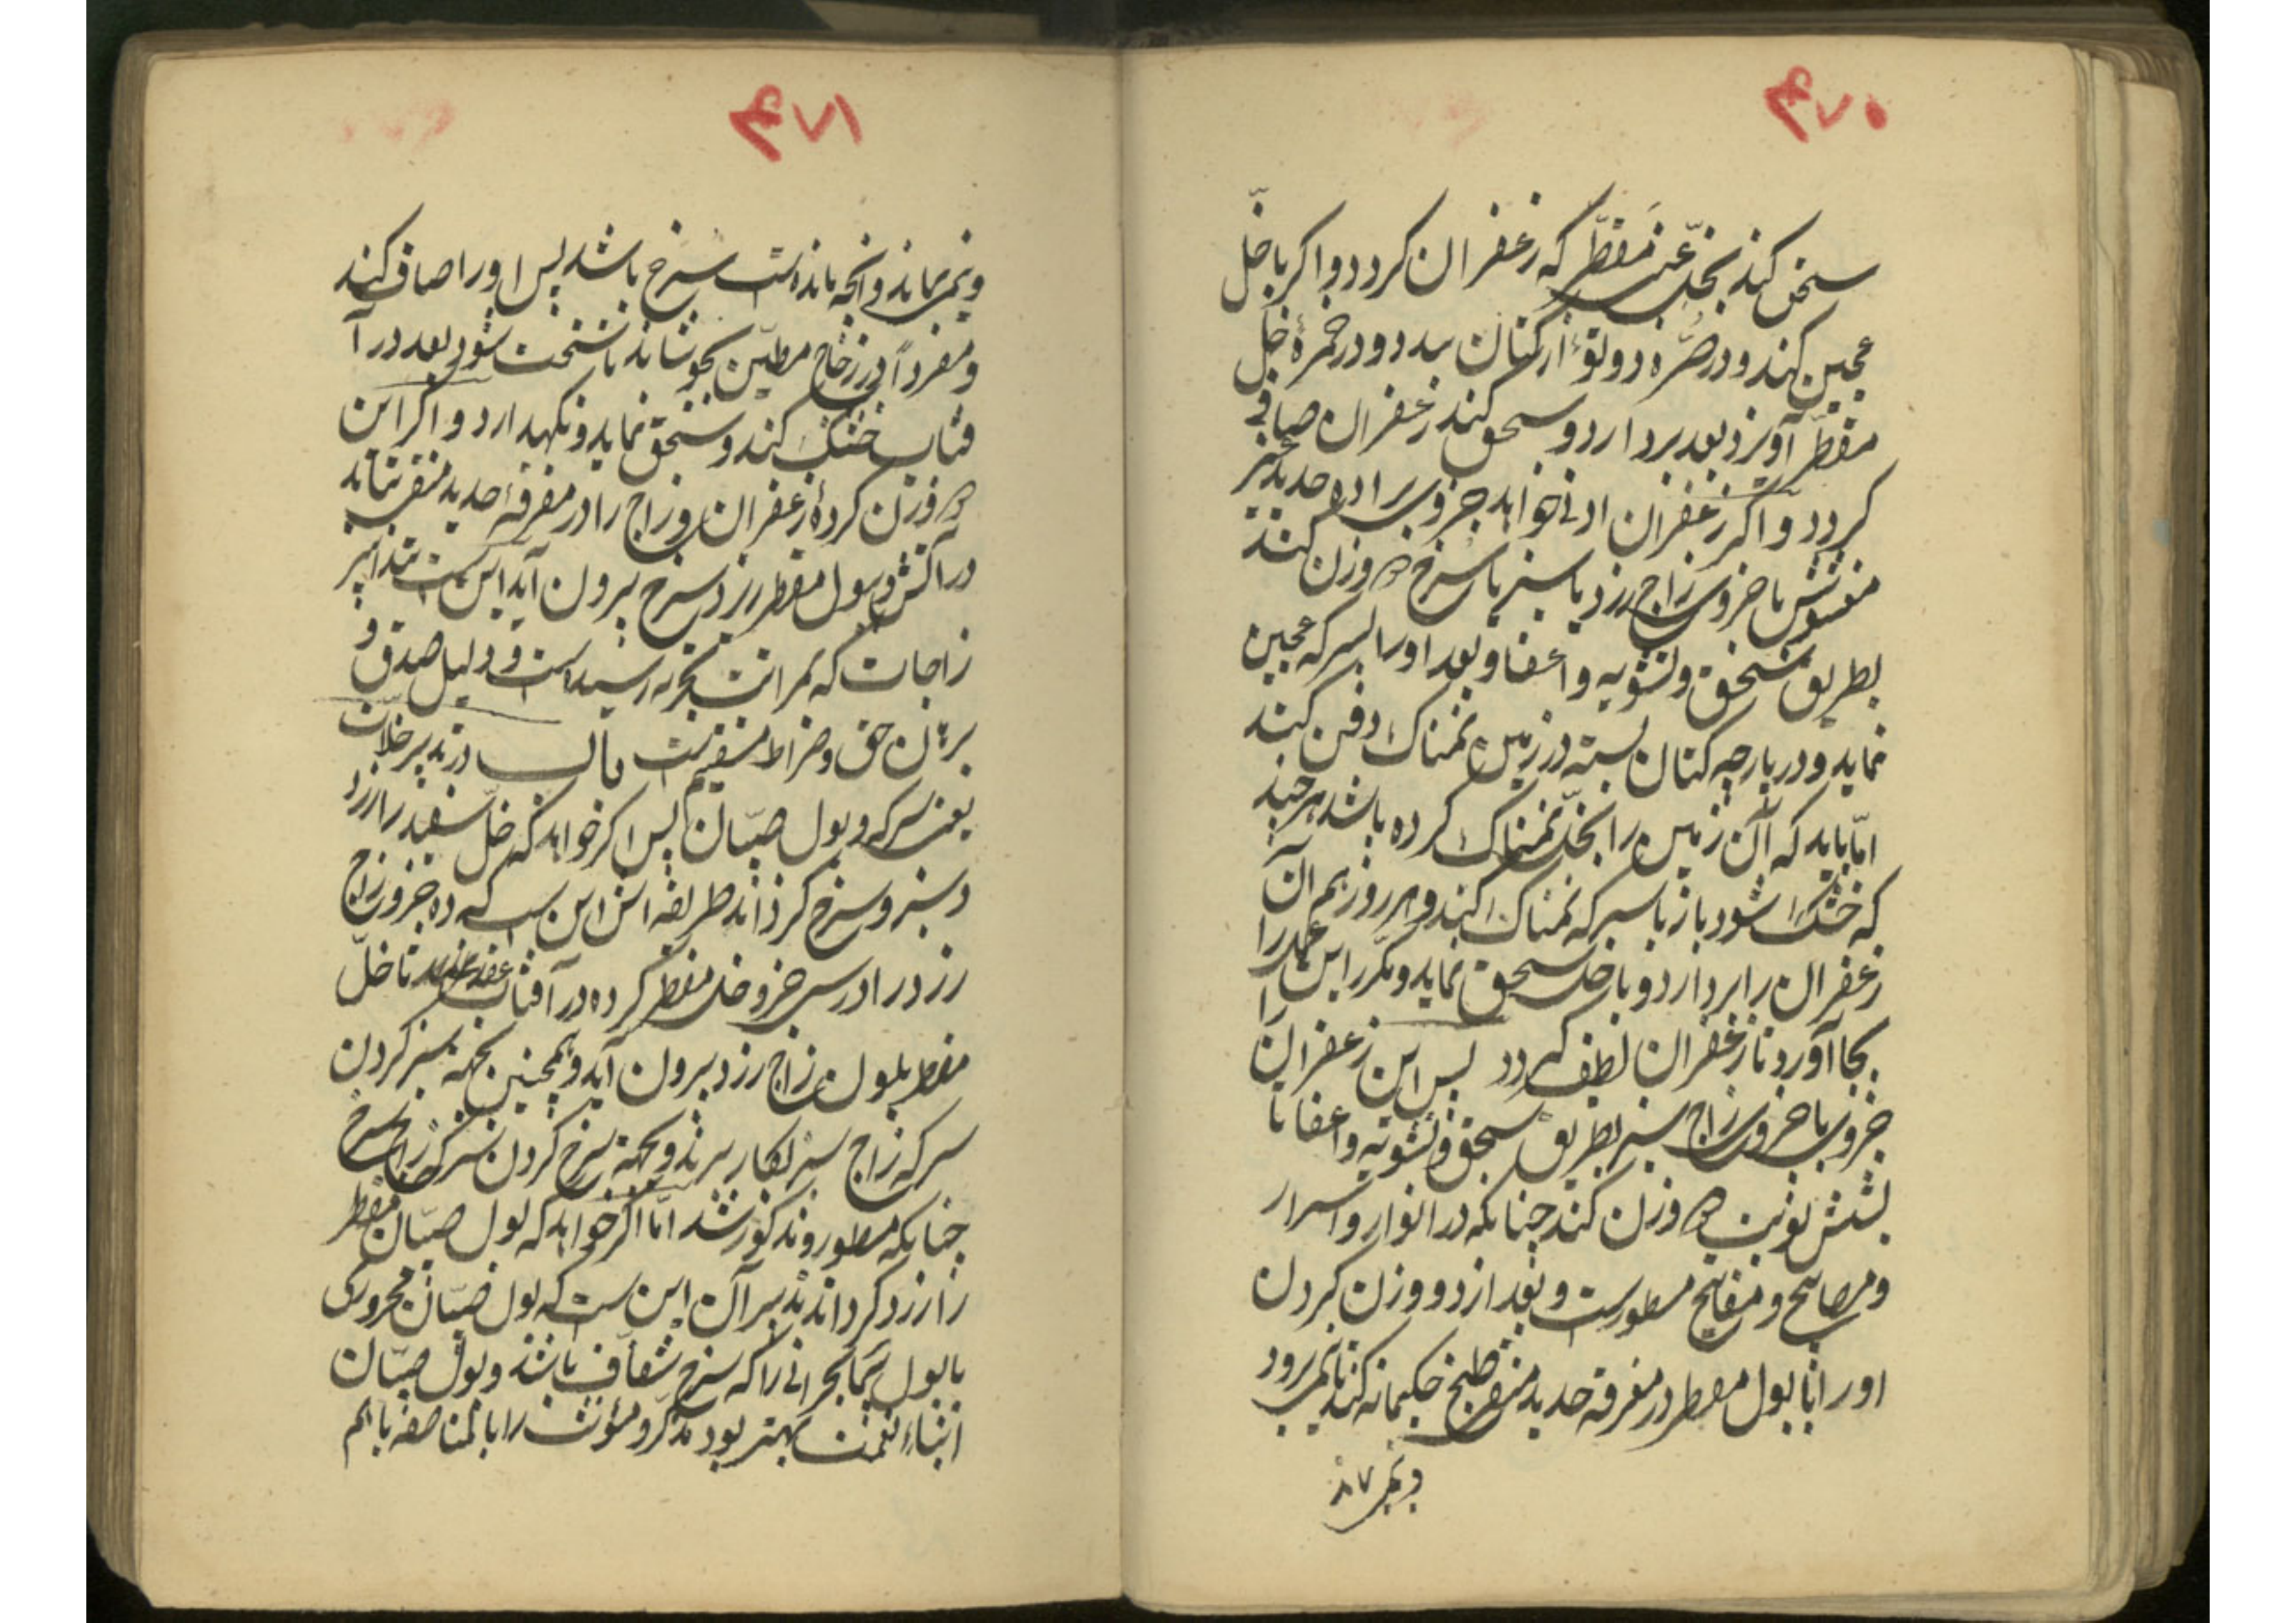 ۴۷۰
سحق کند بخلّ عنب مقطّر که زعفران کردد و اکر با خلّ
عجین کند و در صرّه دو توء از کتان بندد و در خمرهٔ خل
مقطّر آویزد بعد بردارد و سحق کند زعفران صافی
کردد و اکر زعفران ادنی خواهد جزوی براده حدید بخیر
مغسولش با جزوی زاج زرد یا سبز یا سرخ هموزن کند
بطریق سحق و تشویه و اعفا و بعد او را بسرکه عجین
نماید و در پارچه کتان بسته در زمین نمناک دفن کند
امّا باید که آن زمین را بخلّ نمناک کرده باشد هر چند
که خشک شود باز با سرکه نمناک کند و هر روز هم آن
زعفران را بردارد و با خل سحق نماید و مکرر این عمل را
بجا آورد تا زعفران لطیف کردد پس این زعفران را
جزوی با جزوی زاج سبز بطریق سحق و تشویه و اعفا تا
بشش نوبت هموزن کند چنانکه در انوار و اسرار
و مصابیح و مفاتیح مسطورست و بعد از دو وزن کردن
او را با بول مقطر در مغرفه حدید منقر طبخ حکیمانه کند تا نمیرود
و نمیر ماند
۴۷۱
و نمیر نماند و آنچه مانده است سرخ باشد پس او را صاف کند
و مفرداً در زجاج مطیّن بجوشاند تا سخت شود بعد در آ
فتاب خشک کند و سحق نماید و نکهدارد و اکر این
هموزن کردهٔ زعفران و زاج را در مغرفهٔ حدید منقر نشاند
در آتش و بول مقطر زرد سرخ بیرون آید این ست تدابیر
زاجات که بمراتب تجربه رسیده است و دلیل صدق و
برهان حق و صراط مستقیم ست باب در تدبیر خلّات
یعنی سرکه و بول صبیان پس اکر خواهد که خلّ سفید را زرد
و سبز و سرخ کرداند طریقه اش این ست که ده جزو زاج
زرد را در سی جزو خل مقطر کرده در آفتاب تا خلّ
مقطر بلون زاج زرد بیرون آید و همچنین بجهة سبز کردن
سرکه زاج سبز بکار برند و بجهة سرخ کردن سرکه زاج سرخ
چنانکه مسطور و مذکور شد امّا اکر خواهد که بول صبیان مقطر
را زرد کرداند تدبیر آن این ست که بول صبیان محروری
با بول بحرانی را که سرخ شفاف باشد و بول صبیان
ابناء نعمت بهتر بود مذکّر و مؤنث را بالمناصفه باهم